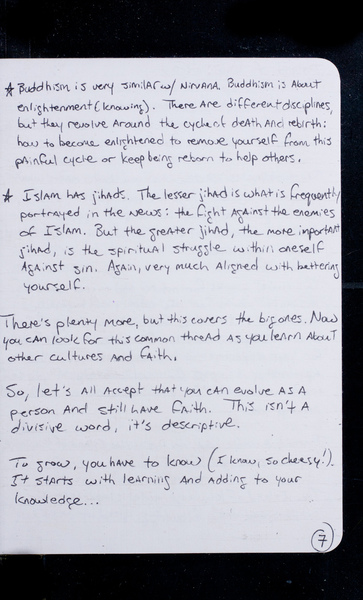 ★ Buddhism is very similar w/ Nirvana. Buddhism is about
enlightenment (knowing). There are different disciplines,
but they revolve around the cycle of death and rebirth:
how to become enlightened to remove yourself from this
painful cycle or keep being reborn to help others.
★ Islam has jihads. The lesser jihad is what is frequently
portrayed in the news: the fight against the enemies
of Islam. But the greater jihad, the more important
jihad, is the spiritual struggle within oneself
against sin. Again, very much aligned with bettering
yourself.
There's plenty more, but this covers the big ones. Now
you can look for this common thread as you learn about
other cultures and faith.
So, let's all accept that you can evolve as a
person and still have faith. This isn't a
divisive word, it's descriptive.
To grow, you have to know (I know, so cheesy!).
It starts with learning and adding to your
knowledge...
7